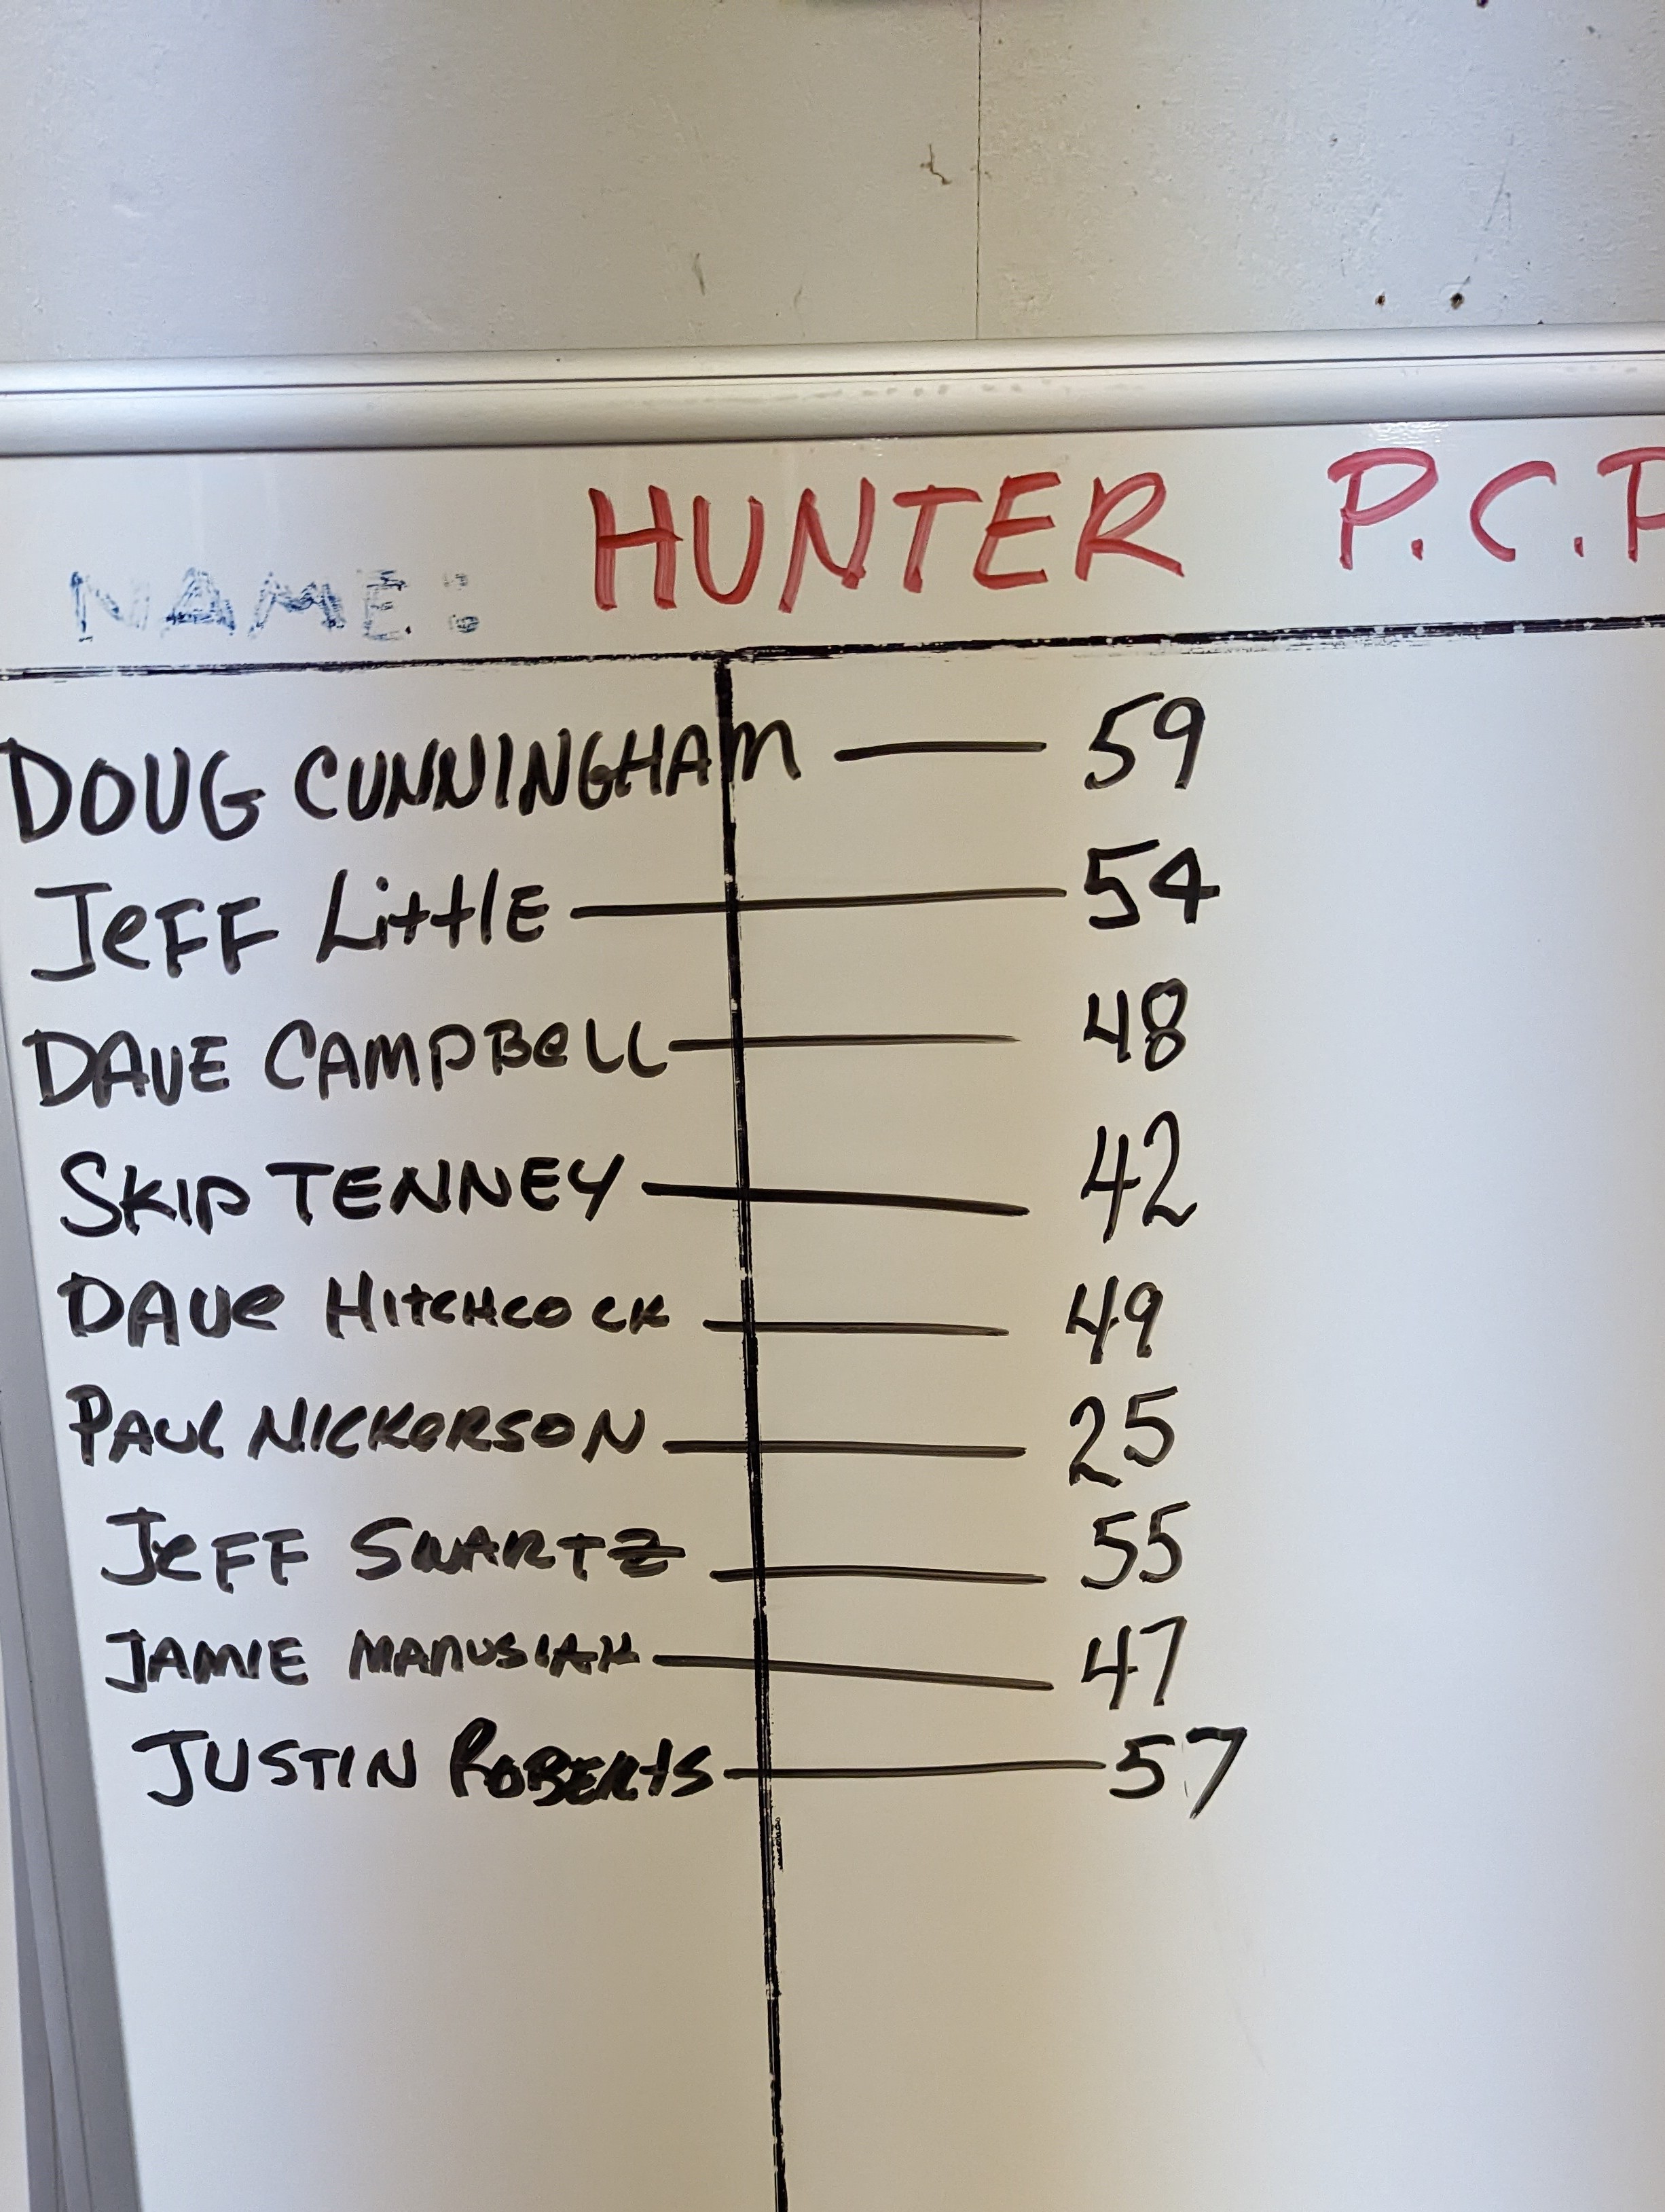 NAME: HUNTER P.C.P
DOUG CUNNINGHAM — 59
JeFF LittlE — 54
DAVE CAMPBeLL — 48
SKIP TENNEY — 42
DAVe HitCHCOCK — 49
PAUL NICKeRSON — 25
JeFF SWARTZ — 55
JAMIE MARUSIAK — 47
JUSTIN ROBERtS — 57